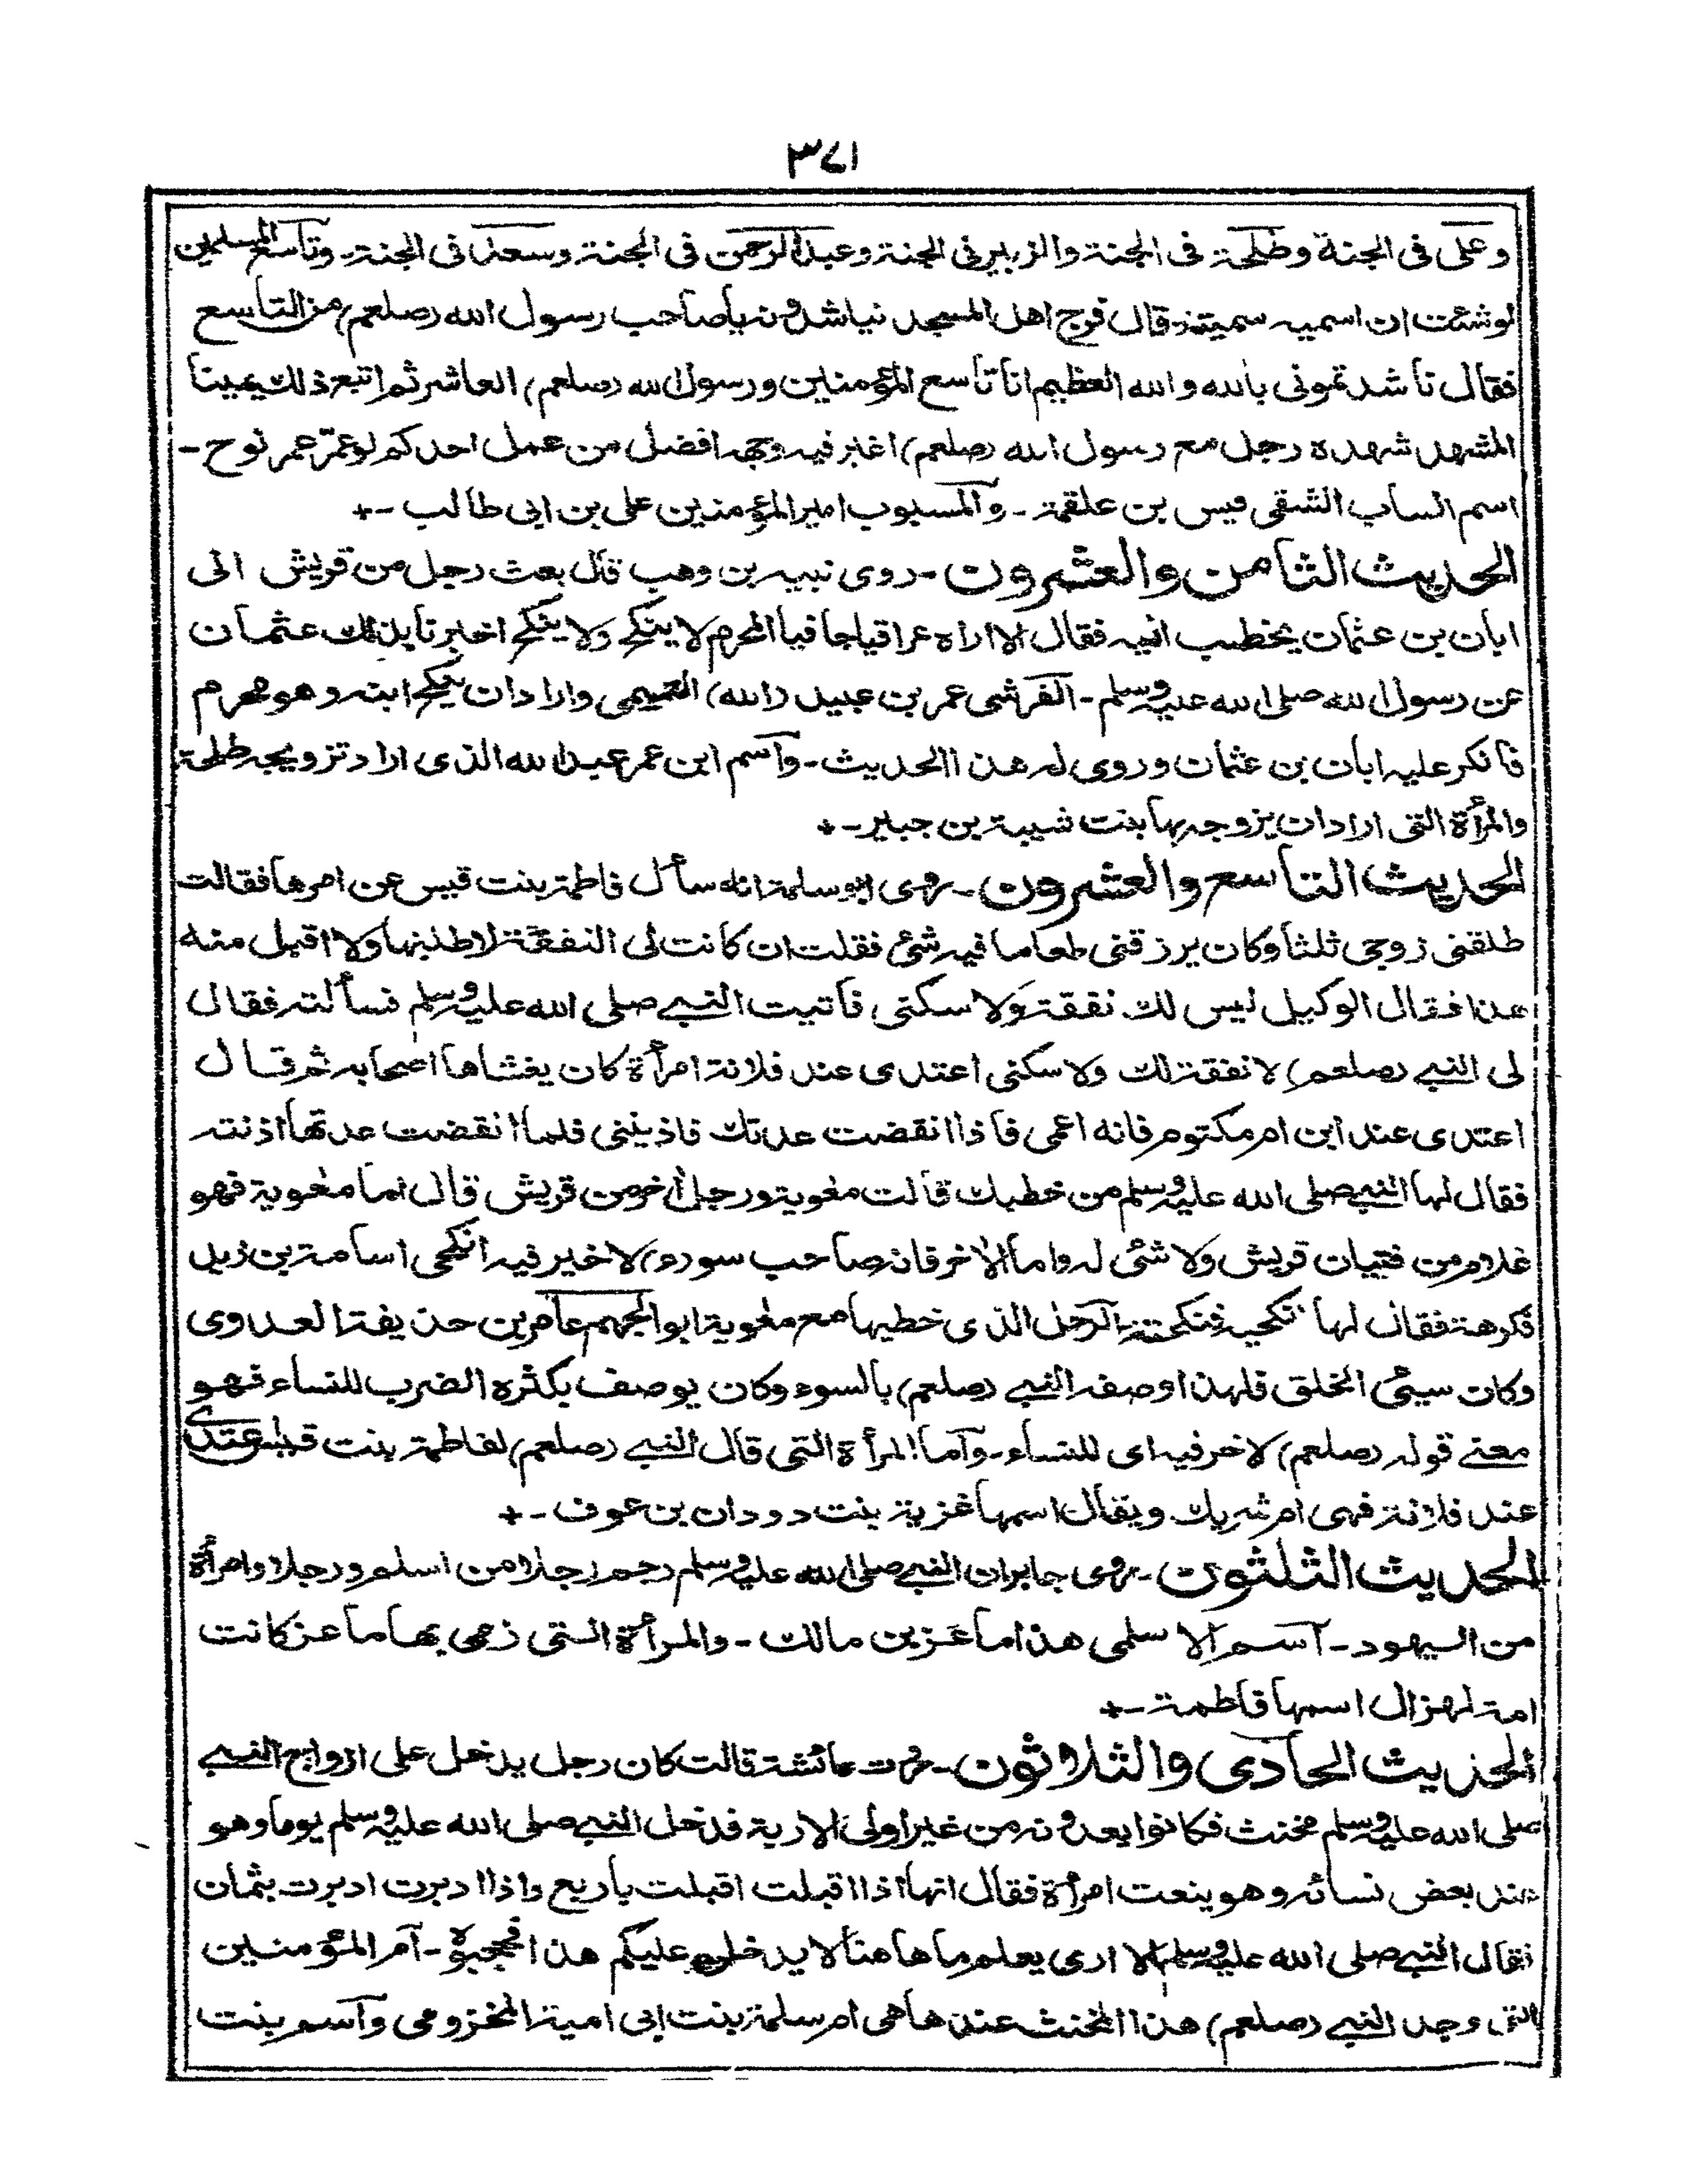 ٣٧١
وعلى فى الجنة وطلحة فى الجنة والزبير فى الجنة وعبدالرحمن فى الجنة وسعد فى الجنة۔ وتاسع المسلمين
لوشئت ان اسميه سميته۔ قال فرج اهل المسجد نياشدونه ياصاحب رسول الله (صلعم) من التاسع
فقال ناشدتمونى بالله والله العظيم انا تاسع المؤمنين ورسول الله (صلعم) العاشر ثم اتبع ذلك يمينا
المشهد شهده رجل مع رسول الله (صلعم) اغبر فيه وجهه افضل من عمل احدكم لوعمّر عمر نوح۔
اسم الساب الشقى قيس بن علقمة۔ والمسبوب امير المؤمنين على بن ابى طالب ۔+
الحديث الثامن والعشرون۔ روى نبيه بن وهب قال بعث رجل من قريش الى
ابان بن عثمان يخطب اليه فقال الا اراه عراقيا جافيا المحرم لا ينكح ولا ينكح اخبرنا بذلك عثمان
عن رسول الله صلى الله عليه وسلم۔ القرشى عمر بن عبيد (الله) التميمى واراد ان ينكح ابنه وهو محرم
فانكر عليه ابان بن عثمان وروى له هذا الحديث۔ واسم ابن عمر عبدالله الذى اراد تزويجه طلحة
والمرأة التى اراد ان يزوجه بها بنت شيبة بن جبير۔+
الحديث التاسع والعشرون۔ روى ابو سلمة انه سأل فاطمة بنت قيس عن امرها فقالت
طلقنى زوجى ثلثا وكان يرزقنى طعاما فيه شئ فقلت ان كانت لى النفقة لاطلبنها ولا اقبل منه
هذا فقال الوكيل ليس لك نفقة ولا سكنى فاتيت النبى صلى الله عليه وسلم فسألته فقال
لى النبى (صلعم) لا نفقة لك ولا سكنى اعتدى عند فلانة امرأة كان يغشاها اصحابه ثم قال
اعتدى عند ابن ام مكتوم فانه اعمى فاذا انقضت عدتك فاذنينى فلما انقضت عدتها اذنته
فقال لها النبى صلى الله عليه وسلم من خطبك قالت معوية ورجل أخر من قريش قال اما معوية فهو
غلام من فتيان قريش ولا شئ له واما الأخر فانه صاحب سو(ء) لا خير فيه انكحى اسامة بن زيد
فكرهته فقال لها انكحيه فنكحته۔ الرجل الذى خطبها مع معوية ابو الجهم عامر بن حذيفة العدوى
وكان سيئ الخلق فلهذا وصفه النبى (صلعم) بالسوء وكان يوصف بكثره الضرب للنساء فهو
معنى قوله (صلعم) لا خر فيه اى للنساء۔ وأما المرأة التى قال النبى (صلعم) لفاطمة بنت قيس اعتدى
عند فلانة فهى ام شريك ويقال اسمها غزية بنت دودان بن عوف ۔+
الحديث الثلثون۔ روى جابر ان النبى صلى الله عليه وسلم رجم رجلا من اسلم ورجلا وامرأة
من اليهود۔ آسم الاسلمى هذا ماعز بن مالك۔ والمرأة التى زمى بها ماعز كانت
امة لهزال اسمها فاطمة ۔+
الحديث الحادى والثلاثون۔ روت عائشة قالت كان رجل يدخل على ازواج النبى
صلى الله عليه وسلم مخنث فكانوا يعدونه من غير اولى الاربة فدخل النبى صلى الله عليه وسلم يوما وهو
عند بعض نسائه وهو ينعت امرأة فقال انها اذا اقبلت اقبلت باربع واذا ادبرت ادبرت بثمان
فقال النبى صلى الله عليه وسلم الا ارى يعلم ما هاهنا لا يدخل عليكم هذا فحجبوه۔ آم المؤمنين
التى وجد النبى (صلعم) هذا المخنث عندها هى ام سلمة بنت ابى امية المخزومى وآسم بنت